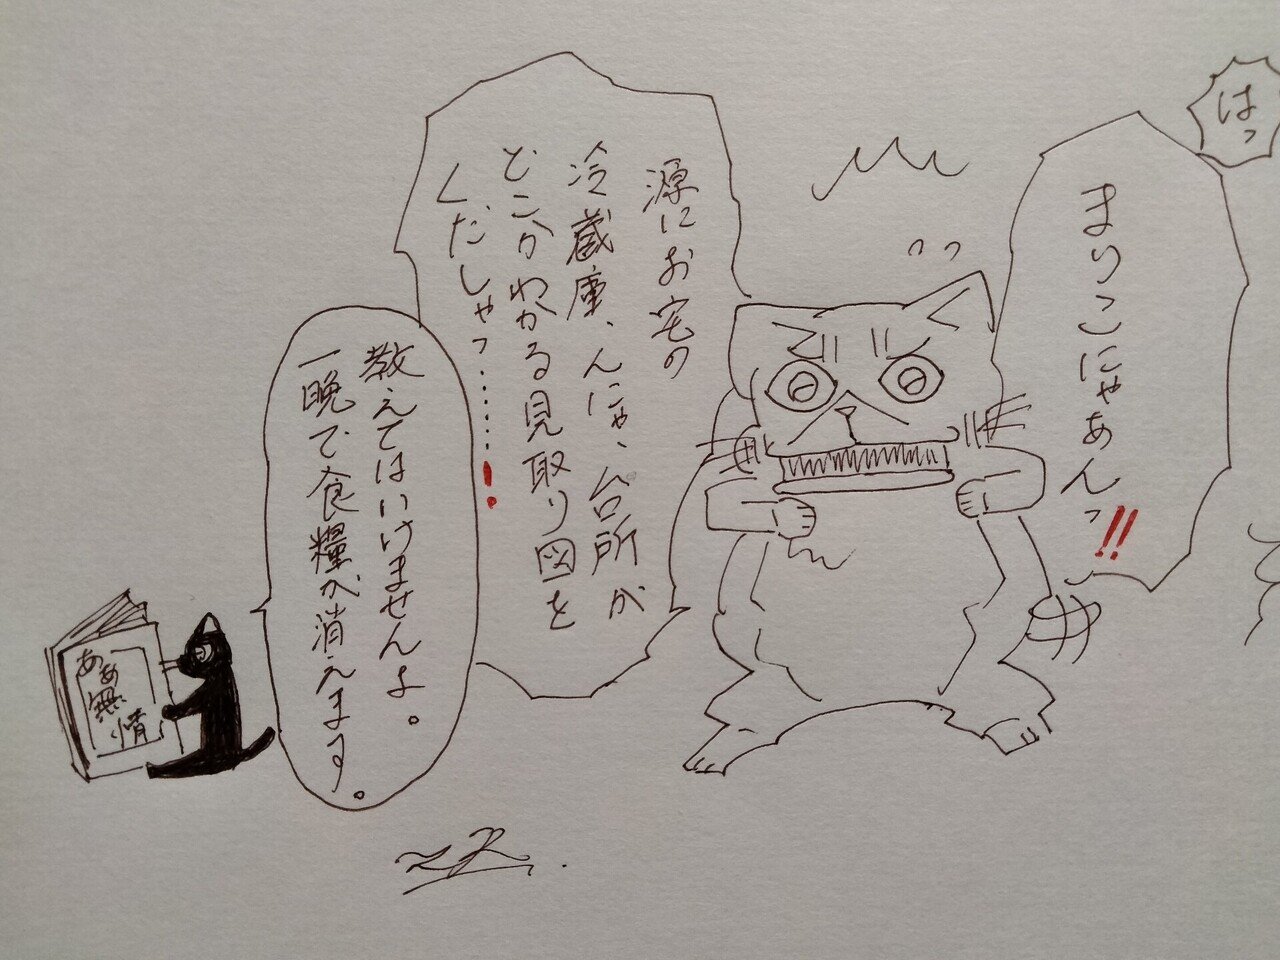 はっ
まりこにゃあんっ!!
源にお宅の
冷蔵庫、んにゃ、台所が
どこかわかる見取り図を
くだしゃっ……!
教えてはいけませんよ。
一晩で食糧が消えます。
ああ
無情